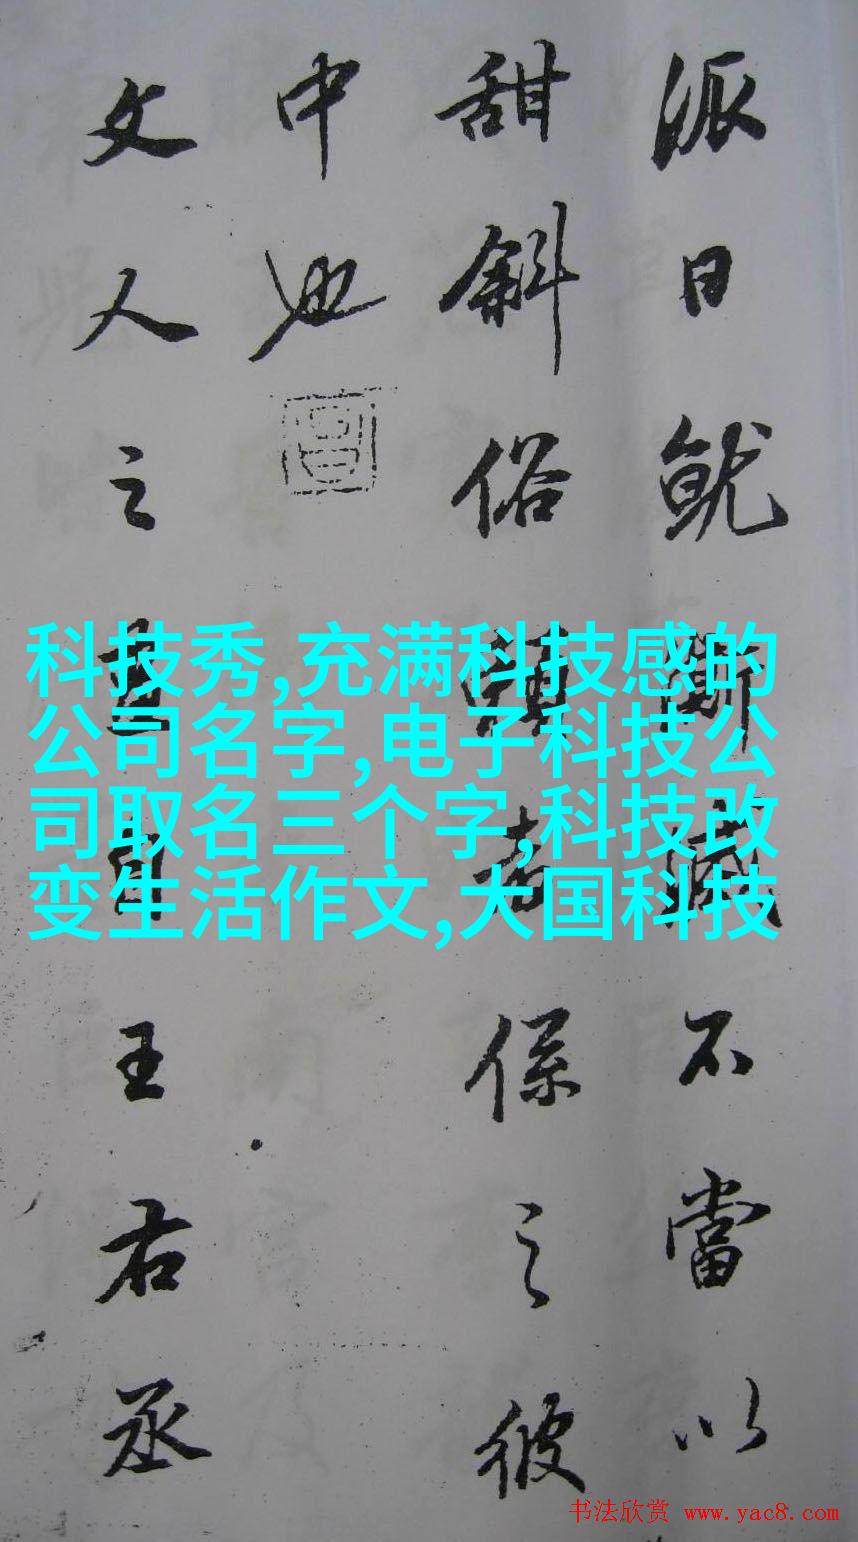 派日就澌滅不當以
甜斜俗賴者係之彼
中也
文人之畫自王右丞
科技秀,充满科技感的
公司名字,电子科技公
司取名三个字,科技改
变生活作文,大国科技
书法欣赏 www.yac8.com